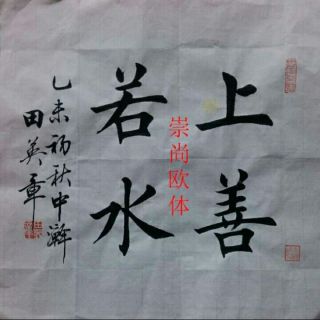 上善
若水
乙未初秋中澣
田英章
崇尚欧体